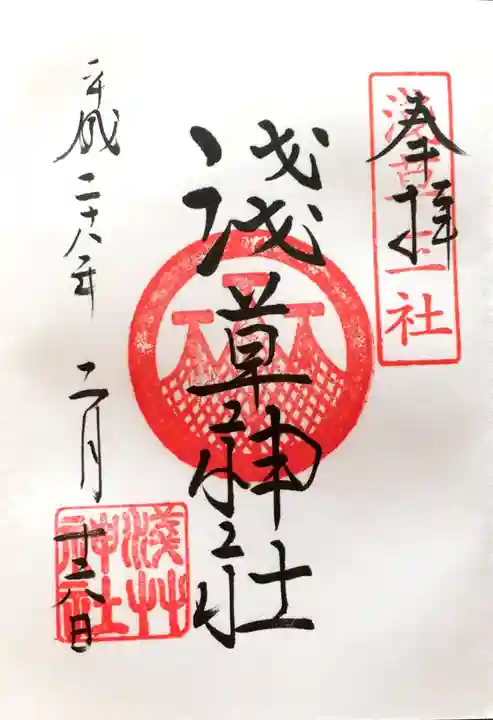 奉拝
淺草三社
淺草神社
平成二十八年二月十六日
淺草神社